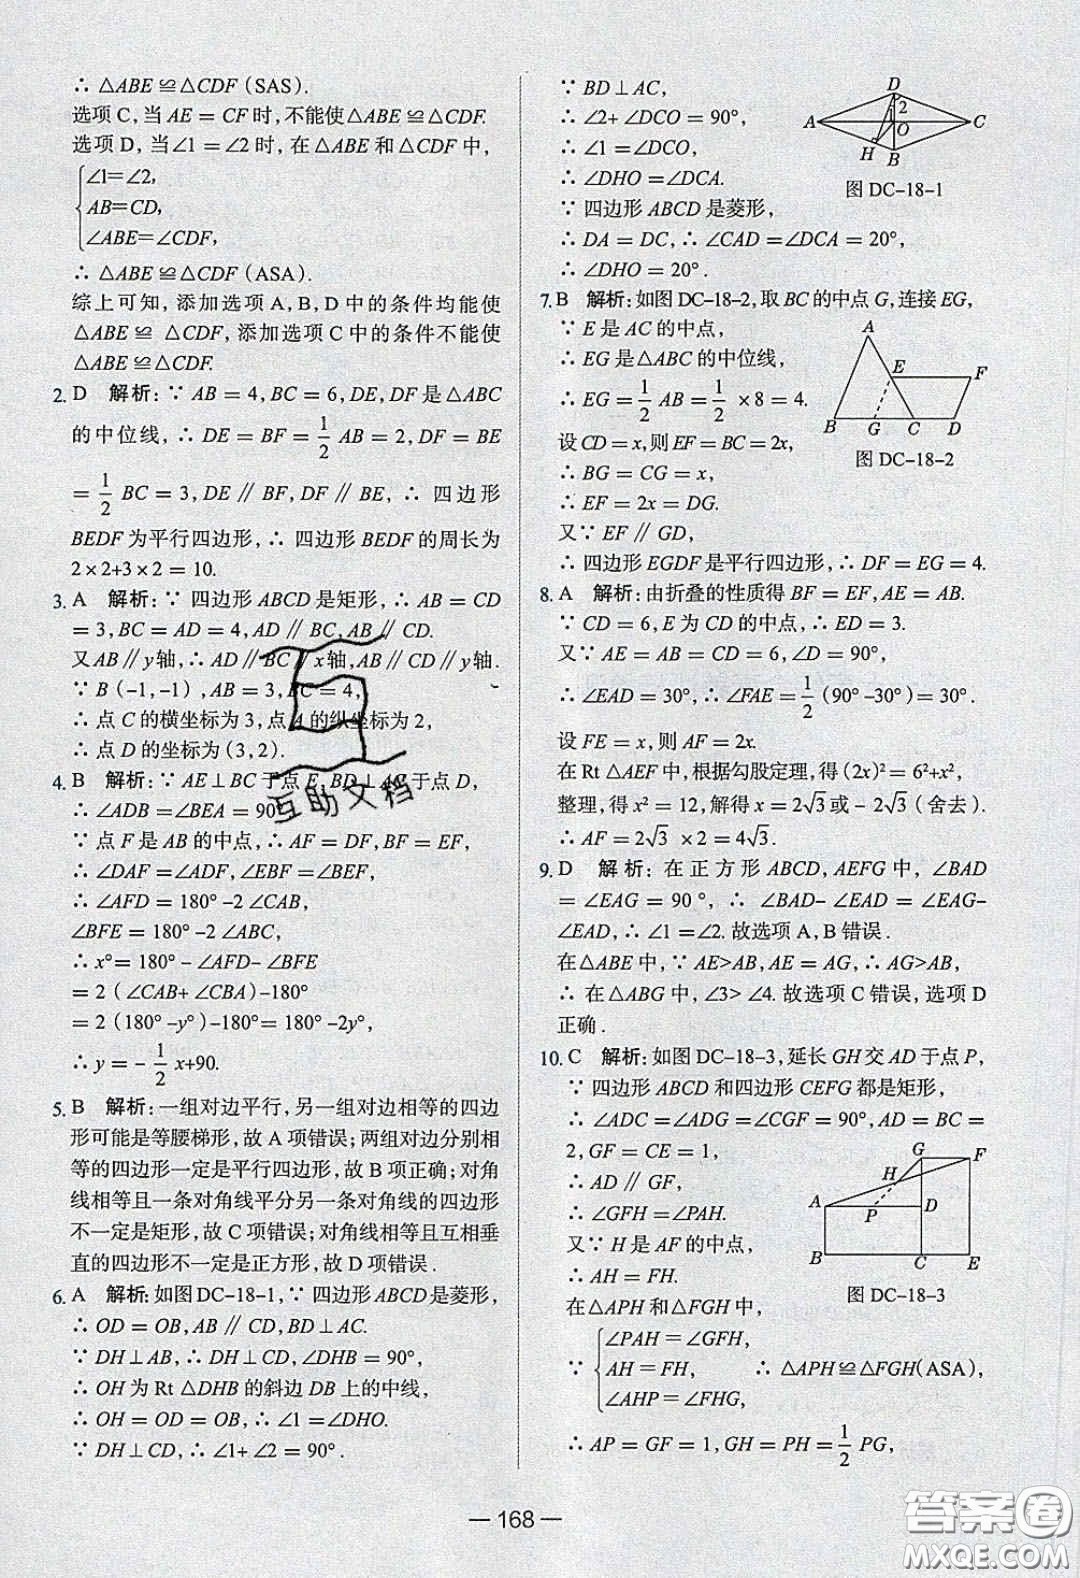 ∴ △ABE ≌ △CDF (SAS).
选项 C,当 AE = CF 时,不能使△ABE ≌△CDF.
选项 D,当∠1 = ∠2 时,在△ABE 和△CDF 中,
∠1=∠2,
AB=CD,
∠ABE=∠CDF,
∴ △ABE ≌ △CDF (ASA).
综上可知,添加选项 A,B,D 中的条件均能使
△ABE ≌ △CDF,添加选项 C 中的条件不能使
△ABE ≌ △CDF.
2. D 解析:∵ AB = 4,BC = 6,DE,DF 是△ABC
的中位线,∴ DE = BF = 1/2 AB = 2,DF = BE
= 1/2 BC = 3,DE∥BF,DF∥BE,∴ 四边形
BEDF 为平行四边形,∴ 四边形 BEDF 的周长为
2×2+3×2 = 10.
3. A 解析:∵ 四边形 ABCD 是矩形,∴ AB = CD
= 3,BC = AD = 4,AD∥BC,AB∥CD.
又AB∥y轴,∴ AD∥BC∥x轴,AB∥CD∥y轴.
∵ B (-1,-1),AB = 3,BC = 4,
∴ 点 C 的横坐标为 3,点 A 的纵坐标为 2,
∴ 点 D 的坐标为 (3,2).
4. B 解析:∵ AE⊥BC 于点 E,BD⊥AC 于点 D,
∴ ∠ADB = ∠BEA = 90°.
∵ 点 F 是 AB 的中点,∴ AF = DF = BF = EF,
∴ ∠DAF = ∠ADF,∠EBF = ∠BEF,
∴ ∠AFD = 180° -2∠CAB,
∠BFE = 180° -2∠ABC,
∴ x° = 180° - ∠AFD- ∠BFE
= 2 (∠CAB+ ∠CBA) -180°
= 2 (180° -y°) -180° = 180° -2y°,
∴ y = - 1/2 x+90.
5. B 解析:一组对边平行,另一组对边相等的四边
形可能是等腰梯形,故 A 项错误;两组对边分别相
等的四边形一定是平行四边形,故 B 项正确;对角
线相等且一条对角线平分另一条对角线的四边形
不一定是矩形,故 C 项错误;对角线相等且互相垂
直的四边形不一定是正方形,故 D 项错误.
6. A 解析:如图 DC-18-1,∵ 四边形 ABCD 是菱形,
∴ OD = OB,AB∥CD,BD⊥AC.
∵ DH⊥AB,∴ DH⊥CD,∠DHB = 90°,
∴ OH 为 Rt △DHB 的斜边 DB 上的中线,
∴ OH = OD = OB,∴ ∠1 = ∠DHO.
∵ DH⊥CD,∴ ∠1+ ∠2 = 90°.
∵ BD⊥AC,
∴ ∠2+ ∠DCO = 90°,
∴ ∠1 = ∠DCO,
∴ ∠DHO = ∠DCA.
∵ 四边形 ABCD 是菱形,
∴ DA = DC,∴ ∠CAD = ∠DCA = 20°,
∴ ∠DHO = 20°.
D
2
A
O
C
H
B
图 DC-18-1
7. B 解析:如图 DC-18-2,取 BC 的中点 G,连接 EG,
∵ E 是 AC 的中点,
∴ EG 是△ABC 的中位线,
∴ EG = 1/2 AB = 1/2 ×8 = 4.
设 CD = x,则 EF = BC = 2x,
∴ BG = CG = x,
∴ EF = 2x = DG.
又∵ EF∥GD,
∴ 四边形 EGDF 是平行四边形,∴ DF = EG = 4.
A
E
F
B
G
C
D
图 DC-18-2
8. A 解析:由折叠的性质得 BF = EF,AE = AB.
∵ CD = 6,E 为 CD 的中点,∴ ED = 3.
又∵ AE = AB = CD = 6,∠D = 90°,
∴ ∠EAD = 30°,∴ ∠FAE = 1/2 (90° -30°) = 30°.
设 FE = x,则 AF = 2x.
在 Rt △AEF 中,根据勾股定理,得 (2x)² = 6²+x²,
整理,得 x² = 12,解得 x = 2√3 或 - 2√3 (舍去).
∴ AF = 2√3 ×2 = 4√3.
9. D 解析:在正方形 ABCD,AEFG 中,∠BAD
= ∠EAG = 90°,∴ ∠BAD- ∠EAD = ∠EAG-
∠EAD,∴ ∠1 = ∠2. 故选项 A,B 错误.
在△ABE 中,∵ AE>AB,AE = AG,∴ AG>AB,
∴ 在△ABG 中,∠3> ∠4. 故选项 C 错误,选项 D
正确.
10. C 解析:如图 DC-18-3,延长 GH 交 AD 于点 P,
∵ 四边形 ABCD 和四边形 CEFG 都是矩形,
∴ ∠ADC = ∠ADG = ∠CGF = 90°,AD = BC =
2,GF = CE = 1,
∴ AD∥GF,
∴ ∠GFH = ∠PAH.
又∵ H 是 AF 的中点,
∴ AH = FH.
在△APH 和△FGH 中,
G
F
H
A
P
D
B
C
E
图 DC-18-3
∠PAH = ∠GFH,
∵ AH = FH, ∴ △APH≌△FGH(ASA),
∠AHP = ∠FHG,
∴ AP = GF = 1,GH = PH = 1/2 PG,
— 168 —
互助文档
答案圈
MXQE.COM